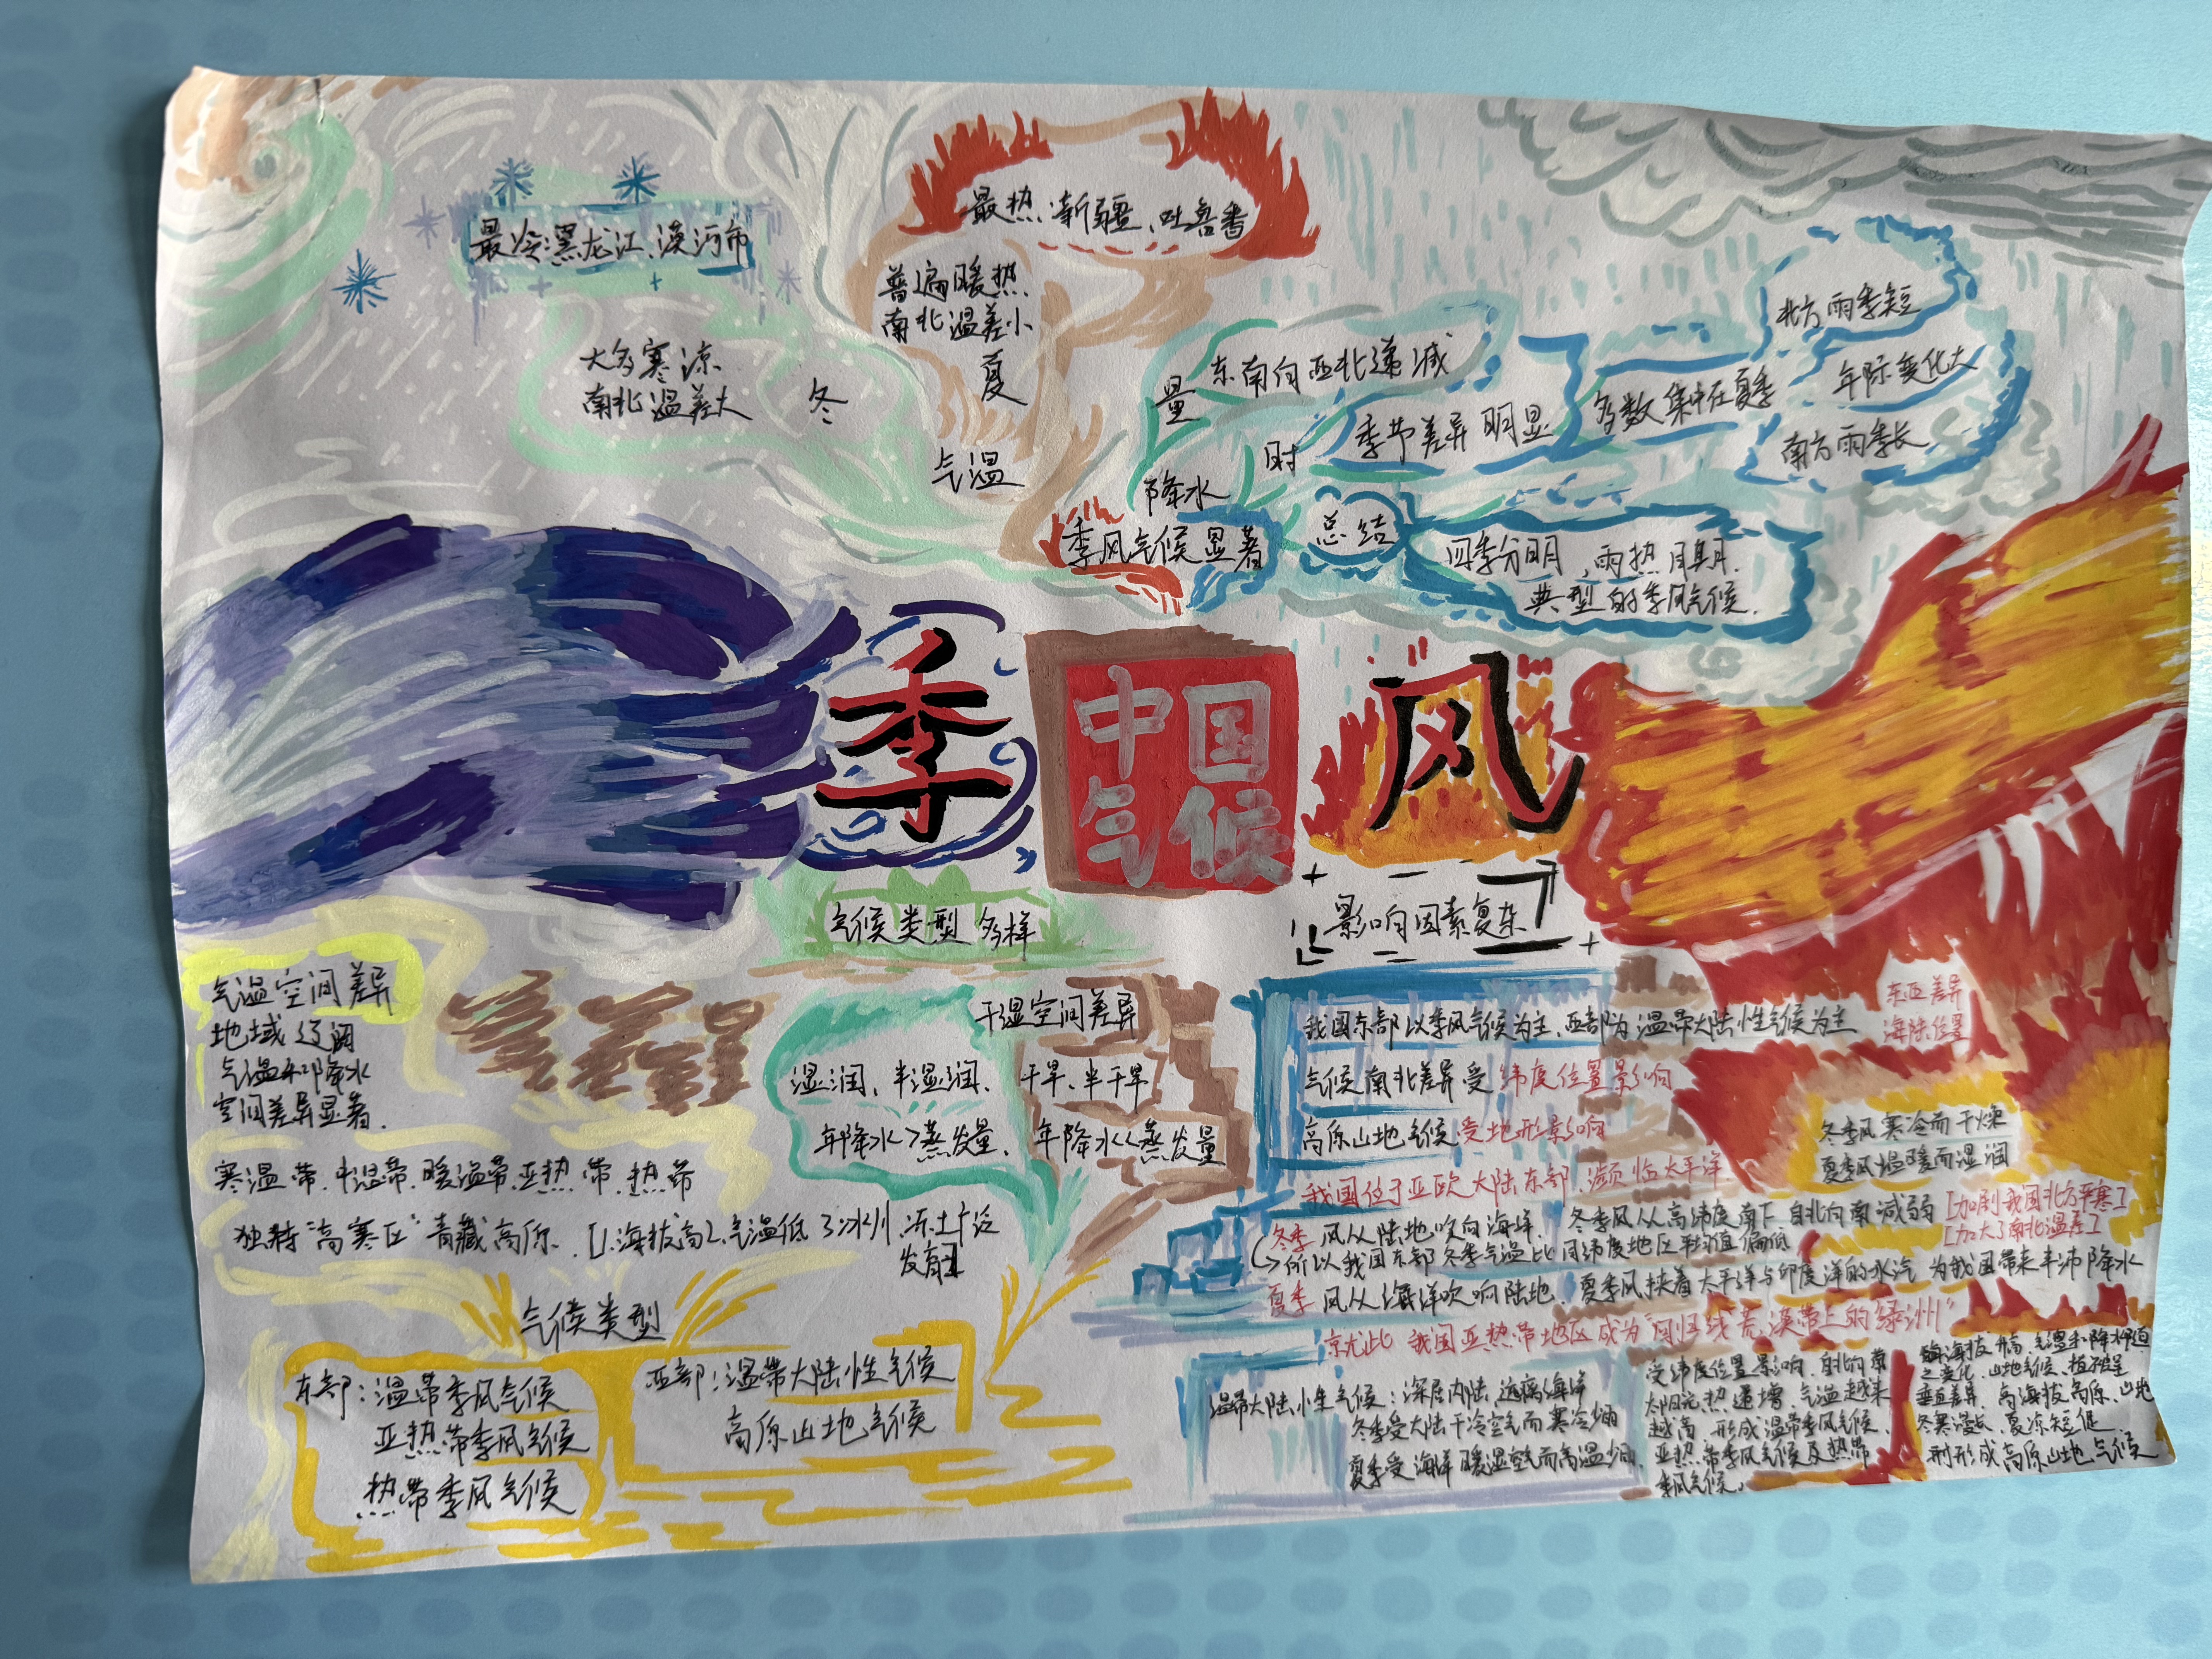 最冷:黑龙江、漠河市
大多寒凉
南北温差大
冬
最热:新疆、吐鲁番
普遍暖热
南北温差小
夏
气温
降水
量
东南向西北递减
时
季节差异明显
多数集中在夏季
北方雨季短
年际变化大
南方雨季长
季风气候显著
总结
四季分明,雨热同期.
典型的季风气候.
季
中国
气候
风
气候类型多样
影响因素复杂
气温空间差异
地域辽阔
气温和降水
空间差异显著.
寒温带.中温带.暖温带.亚热带.热带
独特"高寒区"青藏高原.
1.海拔高2.气温低3冰川、冻土广泛
发育
干湿空间差异
湿润、半湿润、
年降水>蒸发量.
干旱、半干旱
年降水<<蒸发量
气候类型
东部:温带季风气候
亚热带季风气候
热带季风气候
西部:温带大陆性气候
高原山地气候
我国东部以季风气候为主,西部为温带大陆性气候为主
东西差异
海陆位置
气候南北差异受纬度位置影响
高原山地气候受地形影响
我国位于亚欧大陆东部.濒临太平洋.
冬季风寒冷而干燥
夏季风温暖而湿润
冬季风从陆地吹向海洋.
冬季风从高纬度南下.自北向南减弱
[加剧我国北方严寒]
[加大了南北温差]
所以我国东部冬季气温比同纬度地区平均值偏低
夏季风从海洋吹响陆地.夏季风挟着太平洋与印度洋的水汽 为我国带来丰沛降水
就此 我国亚热带地区成为"回归线荒漠带上的绿洲"
温带大陆性气候:深居内陆,远离海洋
冬季受大陆干冷空气而寒冷
夏季受海洋暖湿空气而高温
受纬度位置影响.自北向南
太阳光热递增.气温越来
越高.形成温带季风气候.
亚热带季风气候及热带
季风气候.
海拔升高.气温和降水
之变化.山地气候、植被呈
垂直差异.高海拔高原、山地
冬寒漫长、夏凉短促
则形成高原山地气候